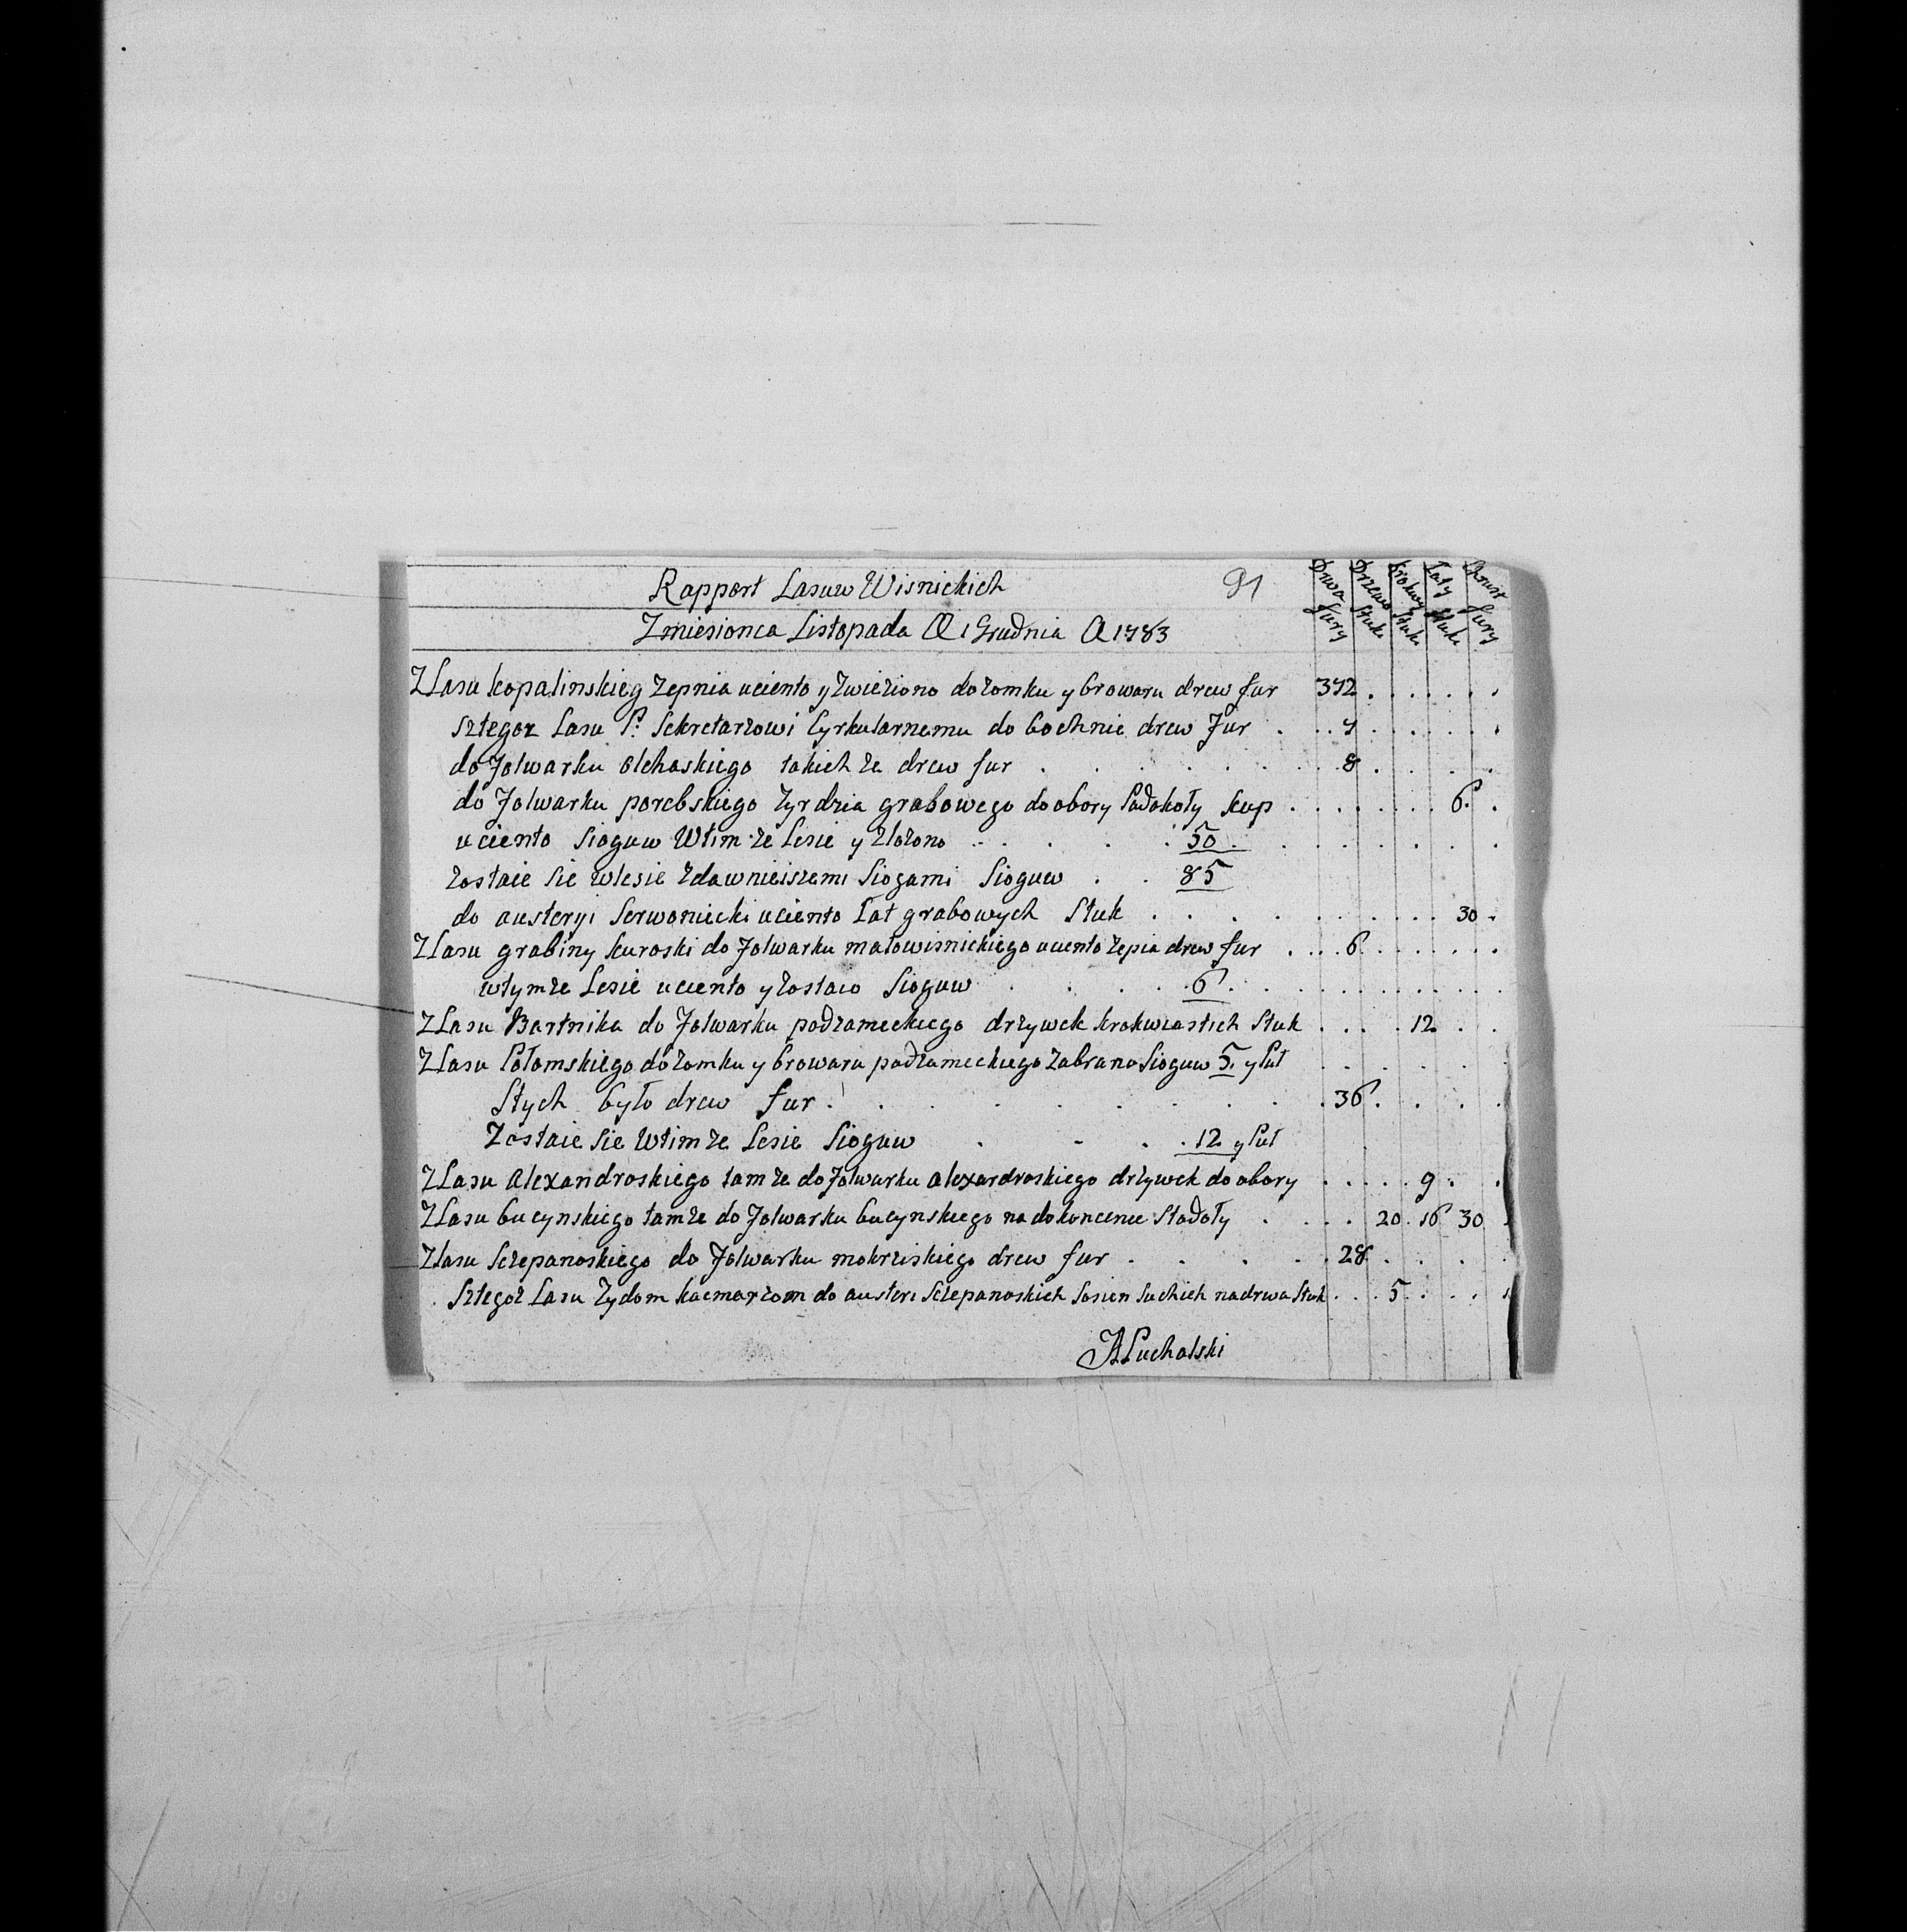 Rapport Lasuw Wisnickich 91
Zmiesionca Listopada @ 1 Grudnia A 1783
Drwa fury Drzewo Stuk Krokwy Stuk Łaty Stuk Chrust fury
ZLasu kopalinskieg zepnia uciento y Zwieziono dozomku y browaru drew fur 372
Sztegoz Lasu P: Sekretarzowi Cyrkularnemu do bochnie drew Fur 7
do Folwarku olchaskiego takich ze drew fur 8
do Folwarku porebskiego zyrdzia grabowego do obory Padokoły kup 6
uciento Sioguw Wtim ze Lesie y zlozono 50
zostaie Sie wlesie zdawnieiszemi Siogami Sioguw 85
do austeryi Serwoniecki uciento Łat grabowych Stuk 30
ZLasu grabiny kuroski do Folwarku małowisnickiego uciento zepia drew fur 6
wtymze Lesie uciento y zostaio Sioguw 6
ZLasu Bartnika do Folwarku podzameckiego drzywek krokwiastich Stuk 12
ZLasu Połomskiego do zomku y browaru podzameckiego zabrano Sioguw 5 y Puł
Stych było drew fur 36
Zostaie Sie Wtim ze Lesie Sioguw 12 y Puł
ZLasu Alexandroskiego tam ze do Folwarku alexandroskiego drzywek do obory 9
ZLasu bucynskiego tamze do Folwarku bucynskiego na dokoncenie Stodoły 20 16 30
ZLasu Sczepanoskiego do Folwarku mokrziskiego drew fur 28
Sztegoz Lasu Zydom kacmarzom do austeri Sczepanoskich Sosien Suchich nadrwa Stuk 5
JAPuchalski